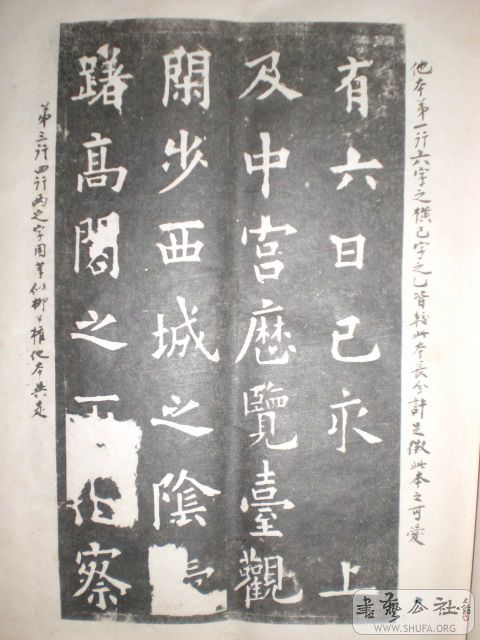 他本第一行六字之橫已字之乚皆較此本長分許足徵此本之可愛
有六日己亥 上
及中宮歷覽臺觀
閑步西城之陰
躇高閣之察
第三行四行兩之字用筆似柳公權他本無是
書藝公社
WWW.SHUFA.ORG